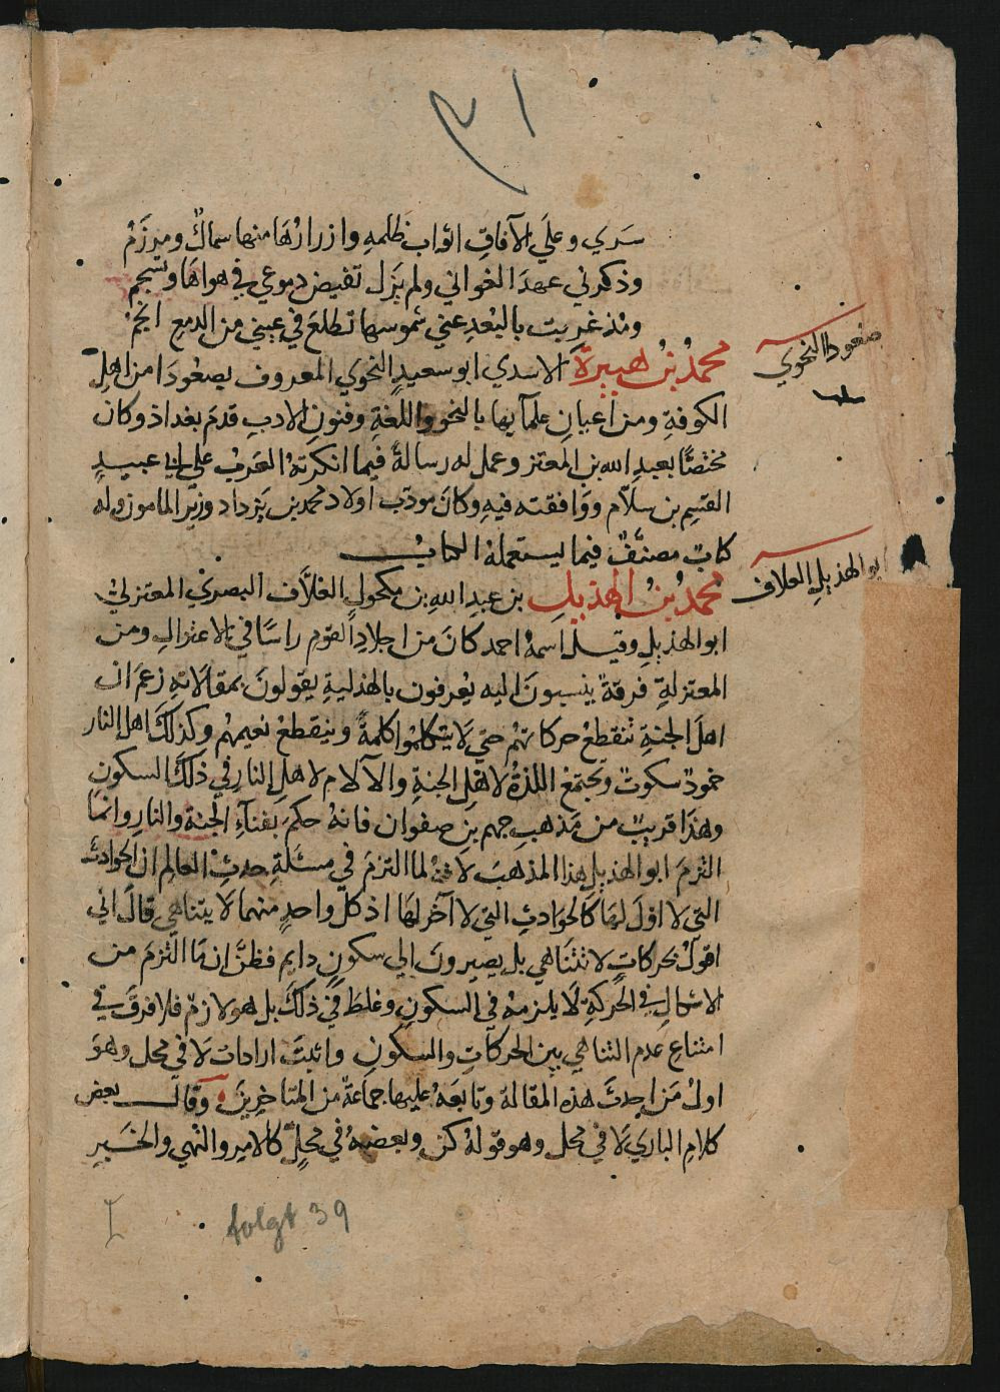 ٣١
سَري وعلَي الآفاقِ اثواب ظَلمهِ وازرارُهَا منها سماكٌ ومرزَمُ
وذكرني عهدَ الغواني ولم يَزَل تفيض دموعي في هواهَا وتسجم
ومُذ غربت بالبُعدِ عني شموسها تطلعَ في عيني من الدمعِ انجمُ
صعودا النحوي
محمدُ بنُ هبيرةَ الاسدي ابو سعيدٍ النحوي المعروف بصعُودَا من اهلِ
الكوفةِ ومن اعيانِ علمآيها بالنحو واللغةِ وفنونِ الادبِ قدمَ بغداذ وكان
مختصًّا بعبدِ الله بن المعتز وعمل له رسالةً فيما انكرتهُ العَربُ على ابي عبيدٍ
القسم بن سلاّم ووافقته فيهِ وكانَ مودب اولاد محمد بن يَزداد وزير المامون وله
كتابٌ مصنفٌ فيما يستعملهُ الكاتب
ابو الهذيلِ العلاف
محمدُ بنُ الهذيلِ بن عبدِ اللهِ بن مكحولٍ العَلاَّف البصري المعتزليُ
ابو الهذيلِ وقيل اسمهُ احمد كانَ من اجلادِ القومِ راسًا في الاعتزالِ ومن
المعتزلةِ فرقةٌ ينسبونَ اليه يُعرفون بالهذليةِ يقولونَ بمقالاتهِ زعمَ ان
اهلَ الجنةِ تنقطعُ حركاتهُم حتي لا يتكلموا كلمةً وينقطعُ نعيمهُم وكذلكَ اهل النار
خمودٌ سكوتٌ وتجتمعُ اللذةُ لاهلِ الجنةِ والآلام لاهلِ النارِ في ذلكَ السكونِ
وهذا قريبٌ من مَذهبِ جهم بن صفوان فانهُ حكمَ بفنآءِ الجنةِ والنارِ وانما
التزمَ ابو الهذيلِ هذا المذهبَ لانهُ لما التزمَ في مسئلةِ حدثِ العالم ان الحوادثَ
التي لا اوّلَ لهَا كالحوادثِ التي لا آخرَ لهَا اذ كل واحدٍ منهما لا يتناهي قالَ اني
اقولُ بحركاتٍ لا تتناهي بل يصيرونَ الي سكونٍ دايم فظنَّ ان مَا التزمَ من
الاشكالِ في الحركةِ لا يلزمهُ في السكونِ وغلطَ في ذلكَ بل هو لازمٌ فلا فرقَ في
امتناع عدم التناهي بين الحركاتِ والسكونِ واثبتَ اراداتٍ لا في محل وهوَ
اولُ مَن احدثَ هذه المقالة وتابعَهُ عليها جماعةٌ من المتاخرينَ وقال بعض
كلامِ الباري لا في محل وهو قولهُ كن وبعضهُ في محلٍ كالامرِ والنهي والخبرِ
folgt 39